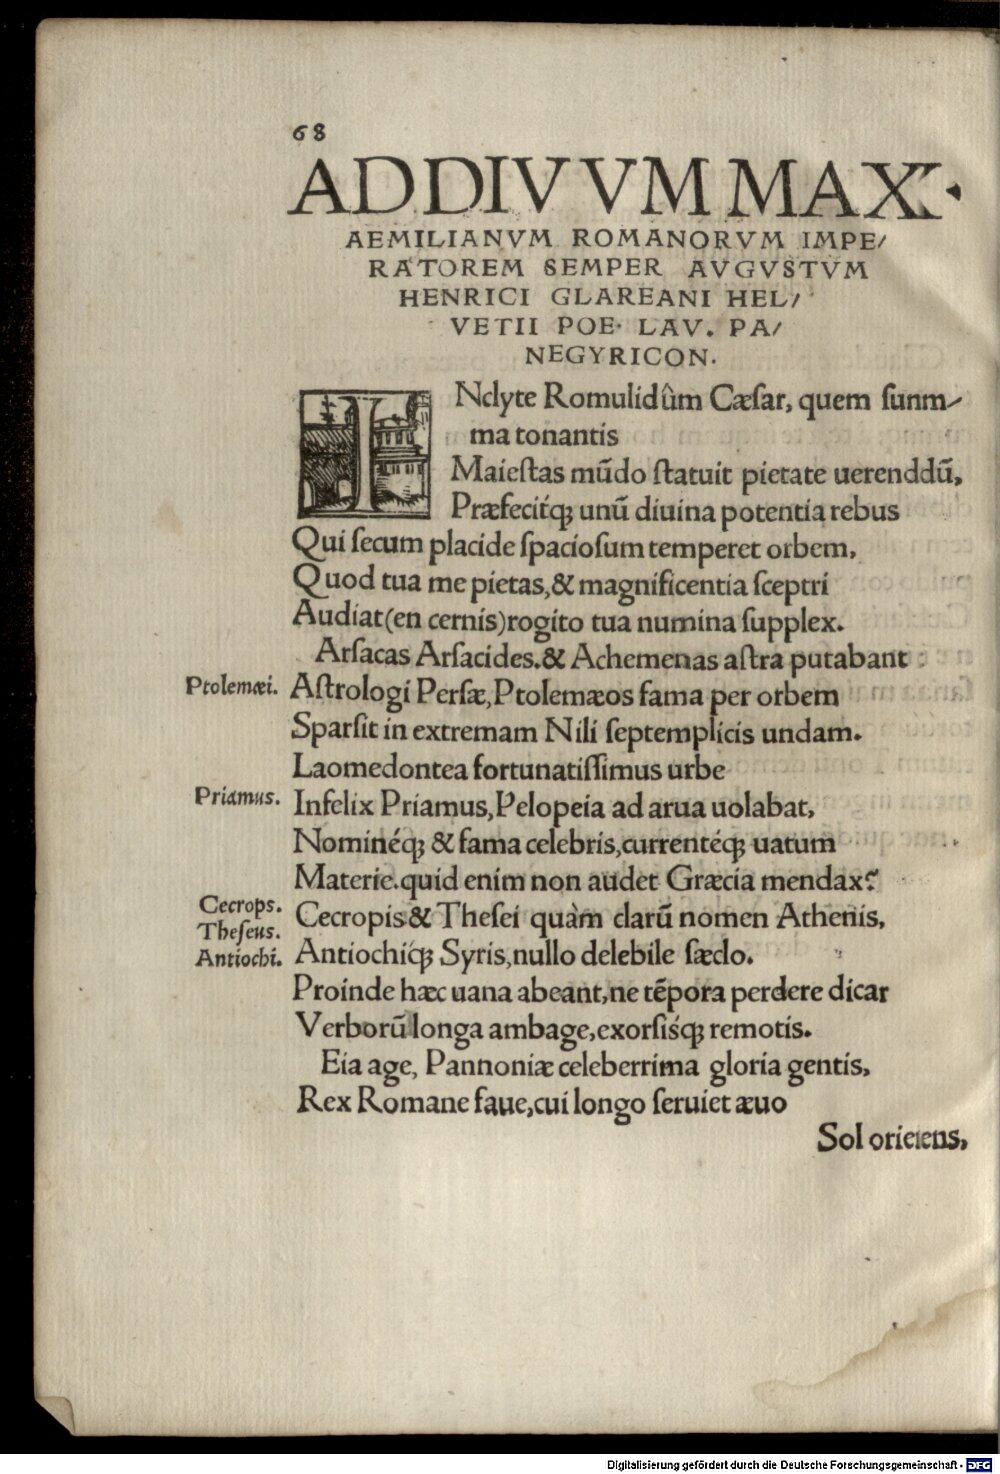 68
AD DIVVVM MAX.
AEMILIANVM ROMANORVM IMPE/
RATOREM SEMPER AVGVSTVM
HENRICI GLAREANI HEL/
VETII POE. LAV. PA/
NEGYRICON.
INclyte Romulidûm Cæsar, quem sunm/
ma tonantis
Maiestas mūdo statuit pietate uerenddū,
Præfecitq́ꝫ unū diuina potentia rebus
Qui secum placide spaciosum temperet orbem,
Quod tua me pietas,& magnificentia sceptri
Audiat(en cernis)rogito tua numina supplex.
Arsacas Arsacides.& Achemenas astra putabant
Ptolemæi. Astrologi Persæ,Ptolemæos fama per orbem
Sparsit in extremam Nili septemplicis undam.
Laomedontea fortunatissimus urbe
Priamus. Infelix Priamus,Pelopeia ad arua uolabat,
Nominéqꝫ & fama celebris,currentéqꝫ uatum
Materie.quid enim non audet Græcia mendax?
Cecrops.
Theseus. Cecropis& Thesei quàm clarū nomen Athenis,
Antiochi. Antiochiq́ꝫ Syris,nullo delebile sæclo.
Proinde hæc uana abeant,ne tēpora perdere dicar
Verborū longa ambage,exorsisq́ꝫ remotis.
Eia age, Pannoniæ celeberrima gloria gentis,
Rex Romane faue,cui longo seruiet æuo
Sol oriens,
Digitalisierung gefördert durch die Deutsche Forschungsgemeinschaft - DFG